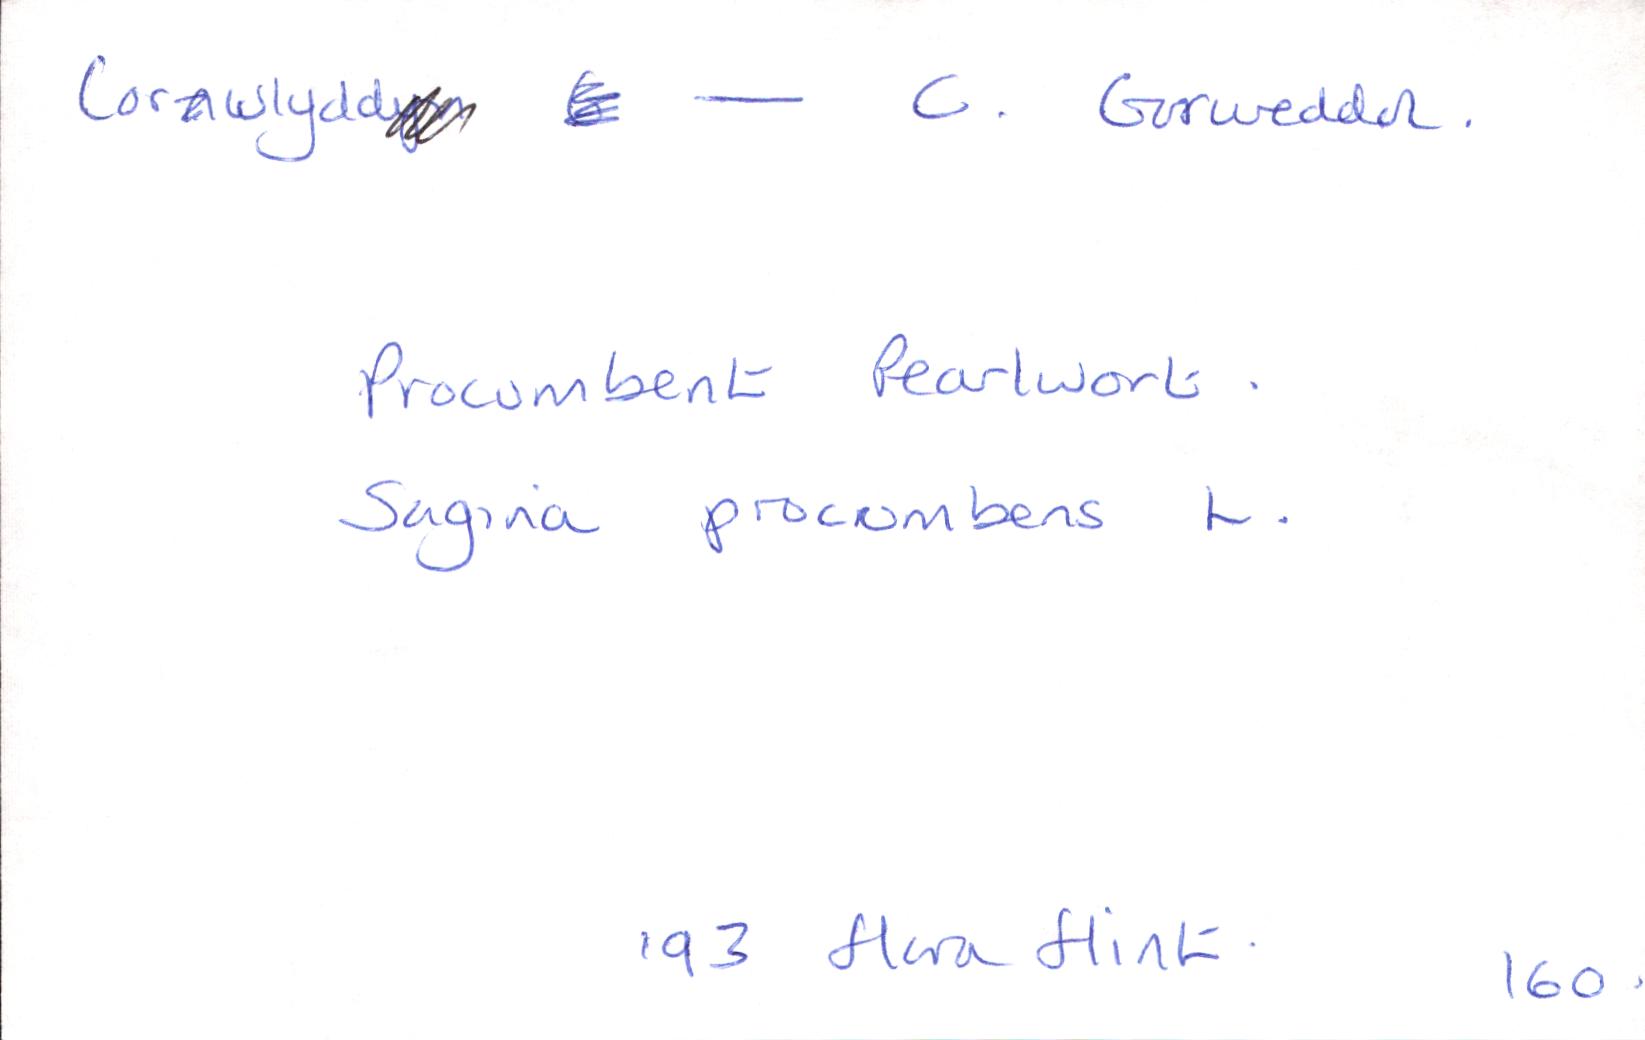 Cornwlydd — C. Gorweddol.
Procumbent Pearlwort.
Sagina procumbens L.
193 Flora Flint.
160.